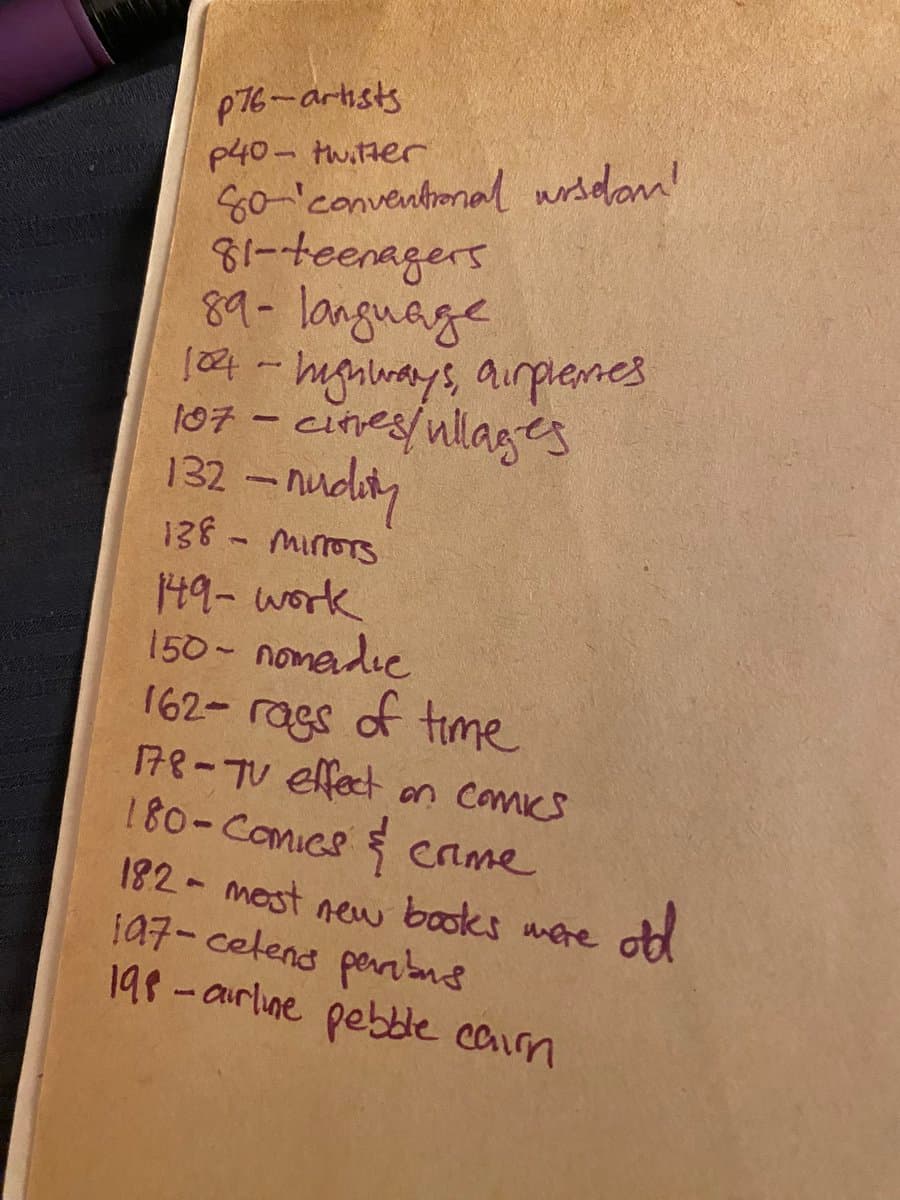 p76-artists
p40- twitter
80-'conventional wisdom'
81-teenagers
89- language
104 - highways, airplanes
107 - cities/villages
132 - nudity
138 - mirrors
149- work
150- nomadic
162- rags of time
178-TV effect on comics
180-Comics & crime
182- most new books were old
197-ceteris paribus
198 -airline pebble cairn